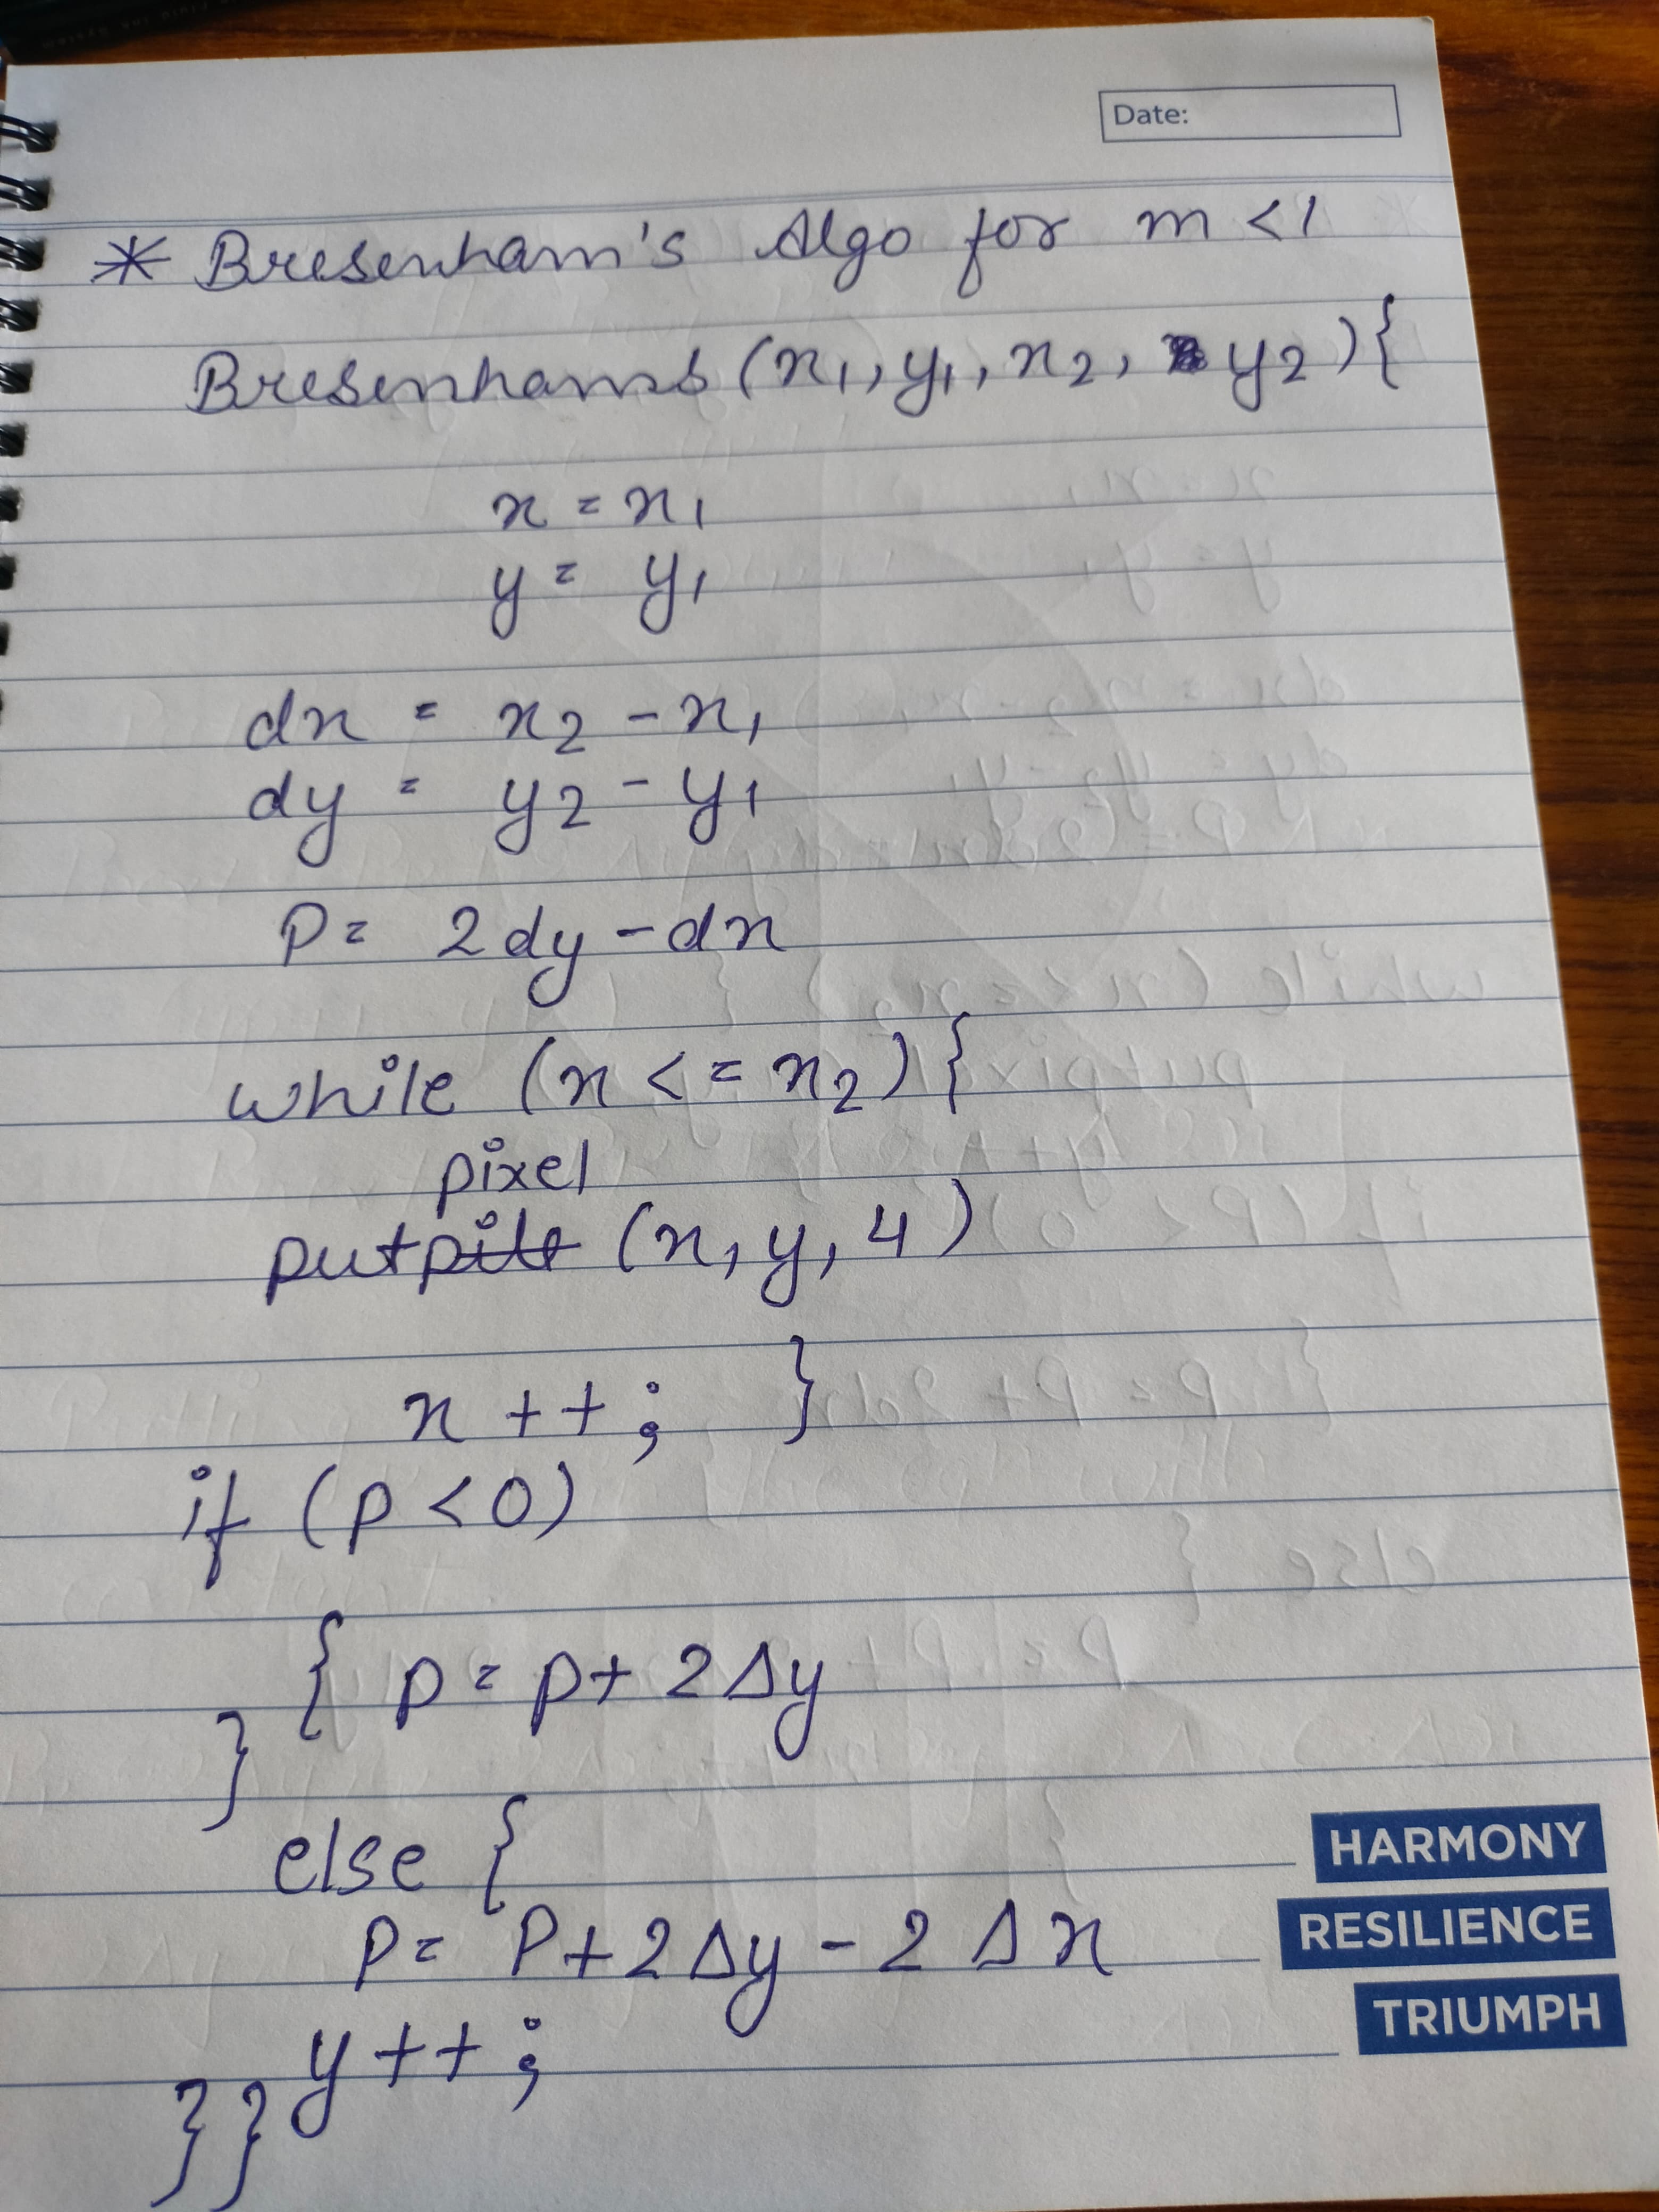 Date:
* Bresenham's Algo for m < 1
Bresenhams (x1, y1, x2, y2) {
x = x1
y = y1
dx = x2 - x1
dy = y2 - y1
P = 2dy - dx
while (x <= x2) {
pixel
putpilt (x, y, 4)
x ++ ; }
if (p < 0)
{ p = p + 2Δy
}
else {
p = P + 2Δy - 2Δx
y ++ ;
} }
HARMONY
RESILIENCE
TRIUMPH